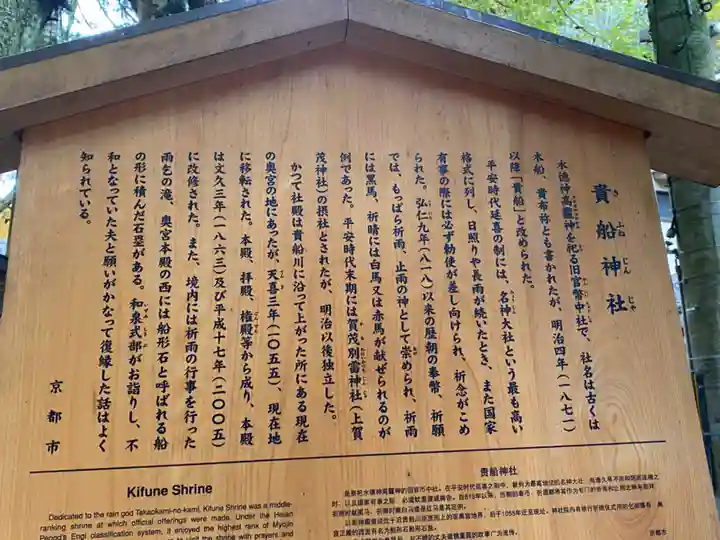 貴船神社
きふねじんじゃ
水徳神高龗神を祀る旧官幣中社で、社名は古くは
木船、貴布祢とも書かれたが、明治四年（一八七一）
以降「貴船」と改められた。
平安時代延喜の制には、名神大社という最も高い
格式に列し、日照りや長雨が続いたとき、また国家
有事の際には必ず勅使が差し向けられ、祈念がこめ
られた。弘仁九年（八一八）以来の歴朝の奉幣、祈願
では、もっぱら祈雨、止雨の神として崇められ、祈雨
には黒馬、祈晴には白馬又は赤馬が献ぜられるのが
例であった。平安時代末期には賀茂別雷神社（上賀
茂神社）の摂社とされたが、明治以後独立した。
かつて社殿は貴船川に沿って上がった所にある現在
の奥宮の地にあったが、天喜三年（一〇五五）、現在地
に移転された。本殿、拝殿、権殿等から成り、本殿
は文久三年（一八六三）及び平成十七年（二〇〇五）
に改修された。また、境内には祈雨の行事を行った
雨乞の滝、奥宮本殿の西には船形石と呼ばれる船
の形に積んだ石塁がある。和泉式部がお詣りし、不
和となっていた夫と願いがかなって復縁した話はよく
知られている。
京都市
Kifune Shrine
Dedicated to the rain god Takaokami-no-kami, Kifune Shrine was a middle-
ranking shrine at which official offerings were made. Under the Heian
Period's Engi classification system, it enjoyed the highest rank of Myojin
贵船神社